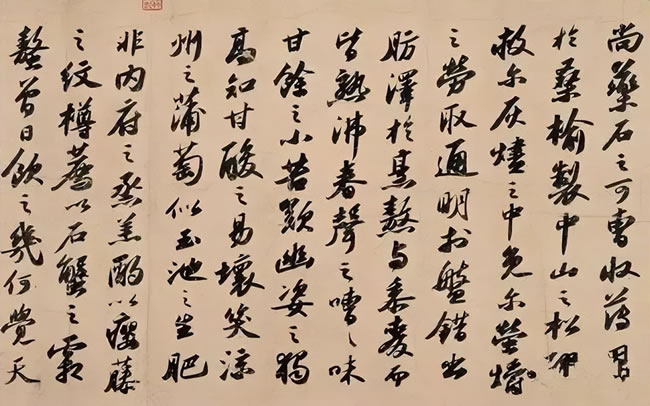 尚藥石之可曹收薄用
於桑榆製中山之松醪
救尒灰燼之中免尒螢爝
之勞取通明於盤錯出
肪澤於烹熬与黍麥而
皆熟沸舂聲之嘈〻味
甘餘之小苦歎幽姿之獨
高知甘酸之易壞笑涼
州之蒲萄似玉池之生肥
非內府之烝羔酌以癭藤
之紋樽薦以石蟹之霜
螯曾日飲之幾何覺天